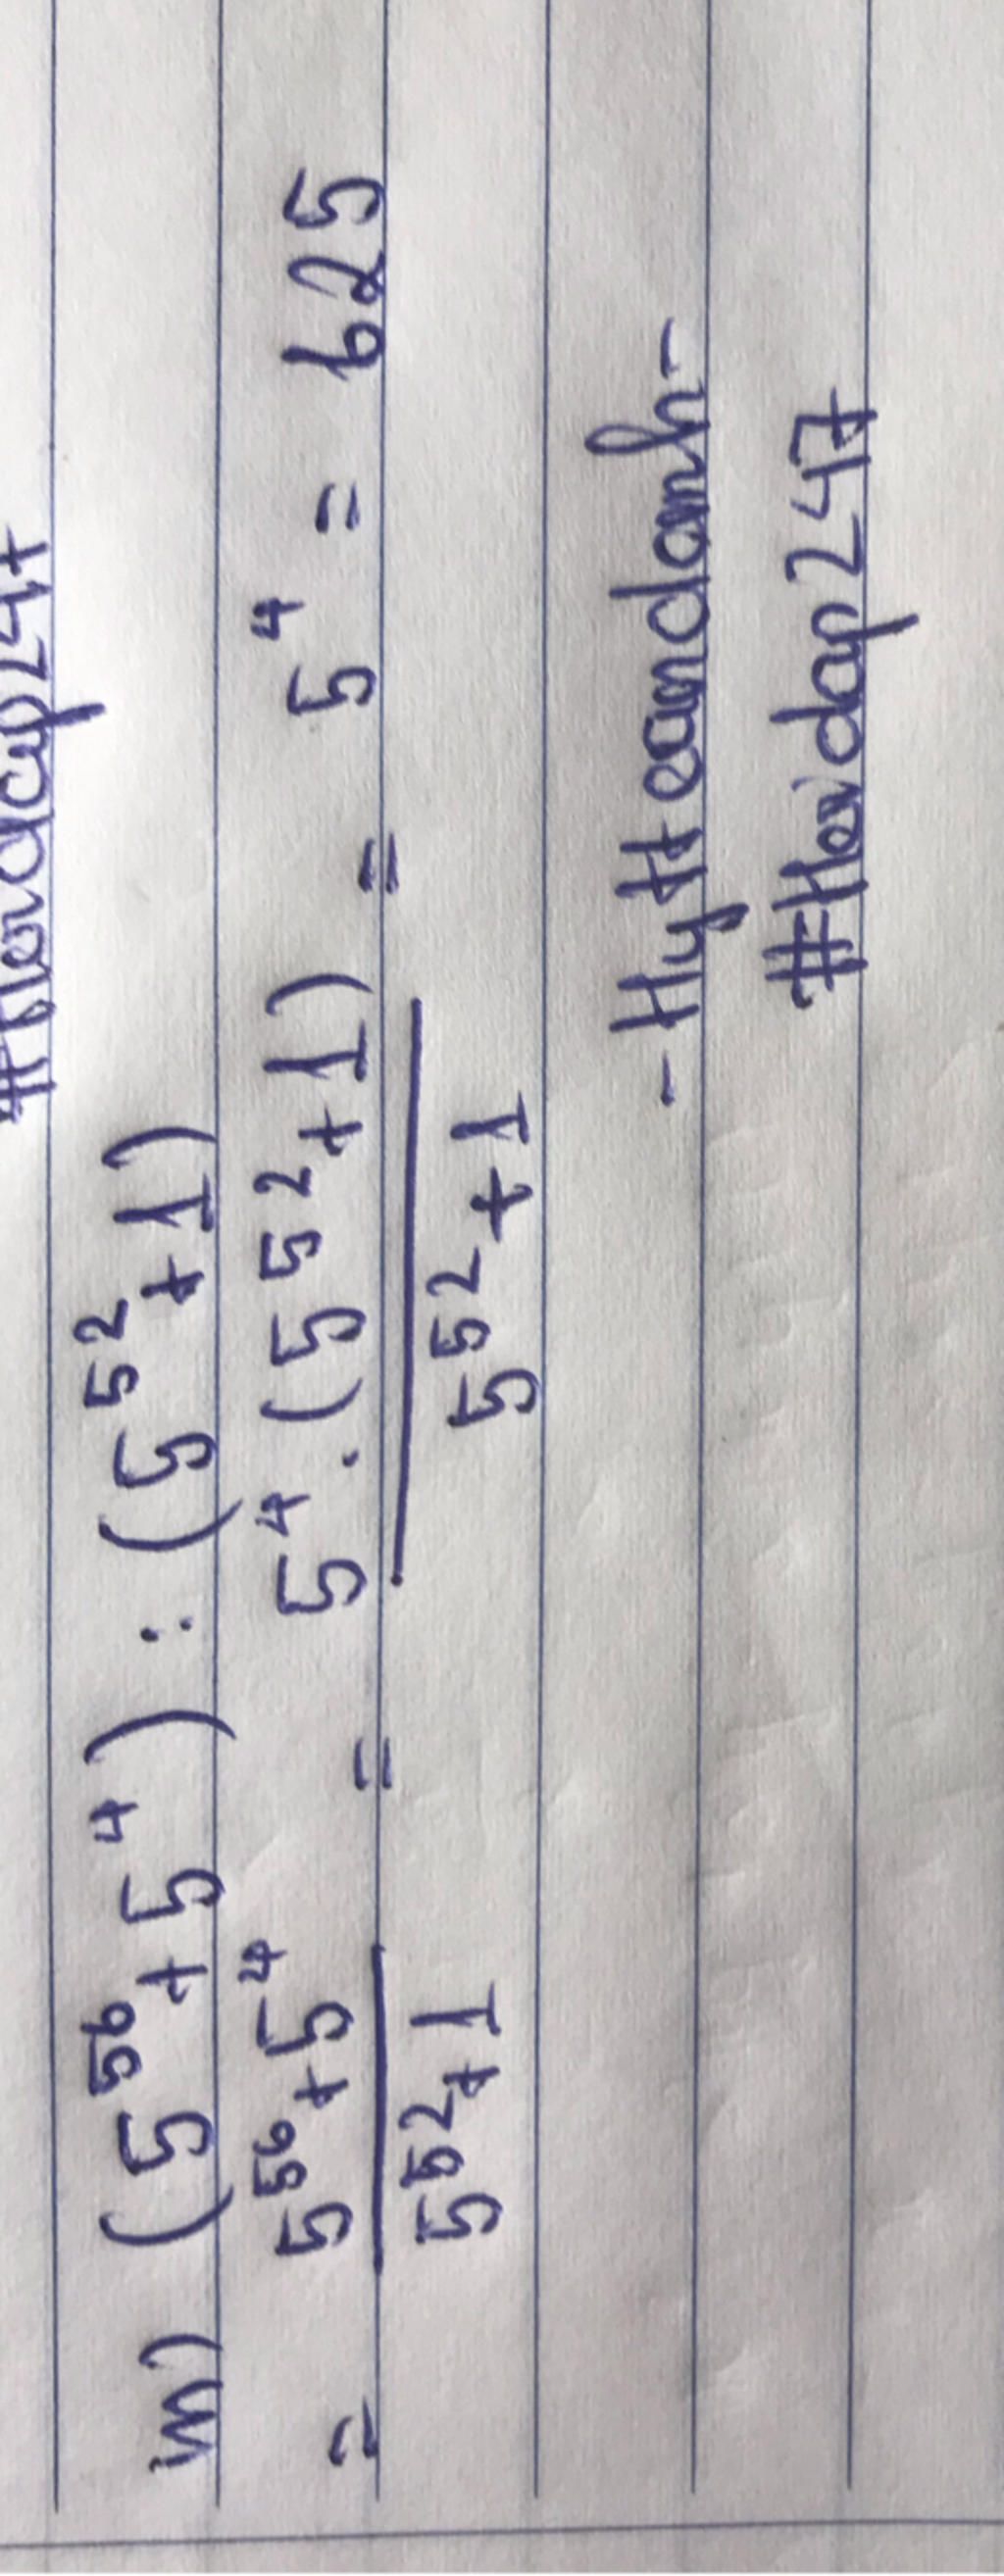 #Hoidap247
m) (5⁵⁶ + 5⁴) : (5⁵² + 1)
= 5⁵⁶ + 5⁴ / 5⁵² + 1 = 5⁴ . (5⁵² + 1) / 5⁵² + 1 = 5⁴ = 625
- HyHeandanh -
#Hoidap247